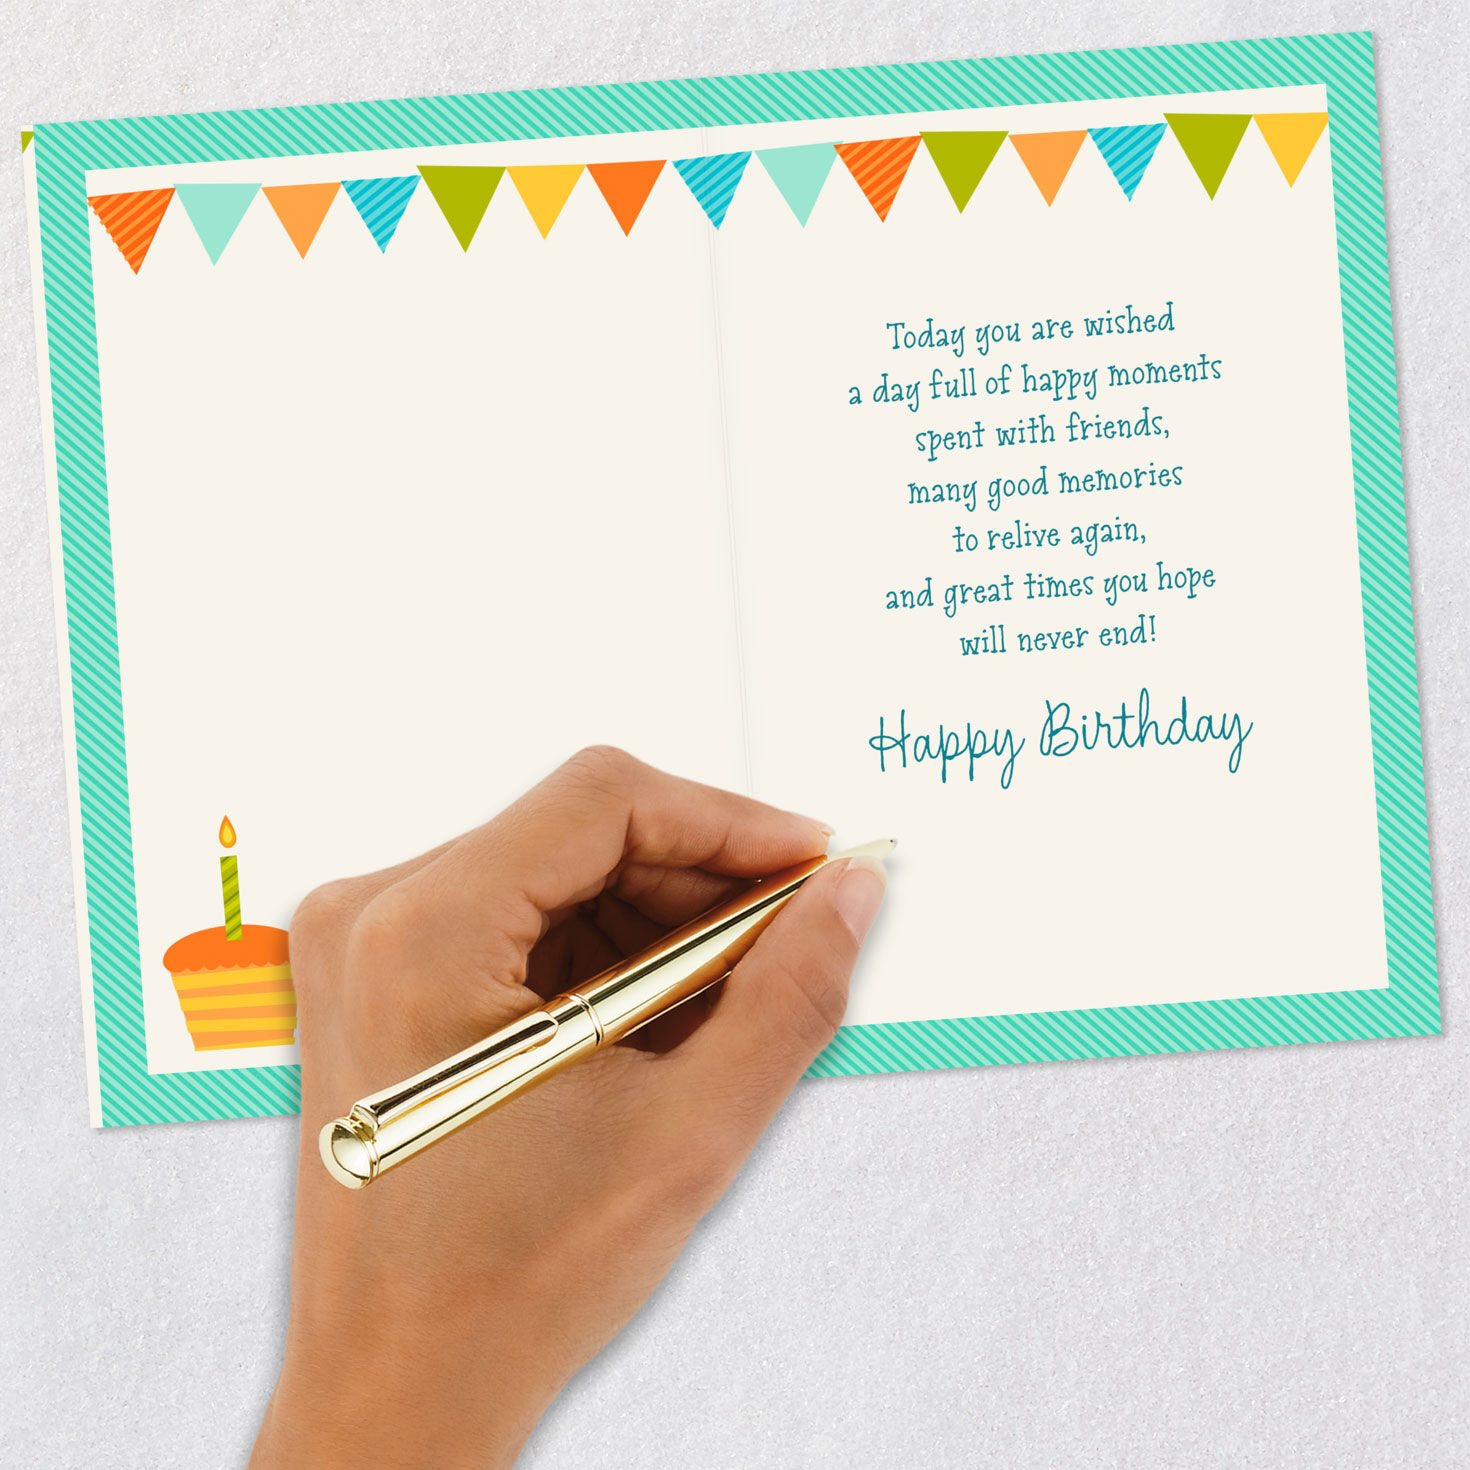 Today you are wished
a day full of happy moments
spent with friends,
many good memories
to relive again,
and great times you hope
will never end!
Happy Birthday